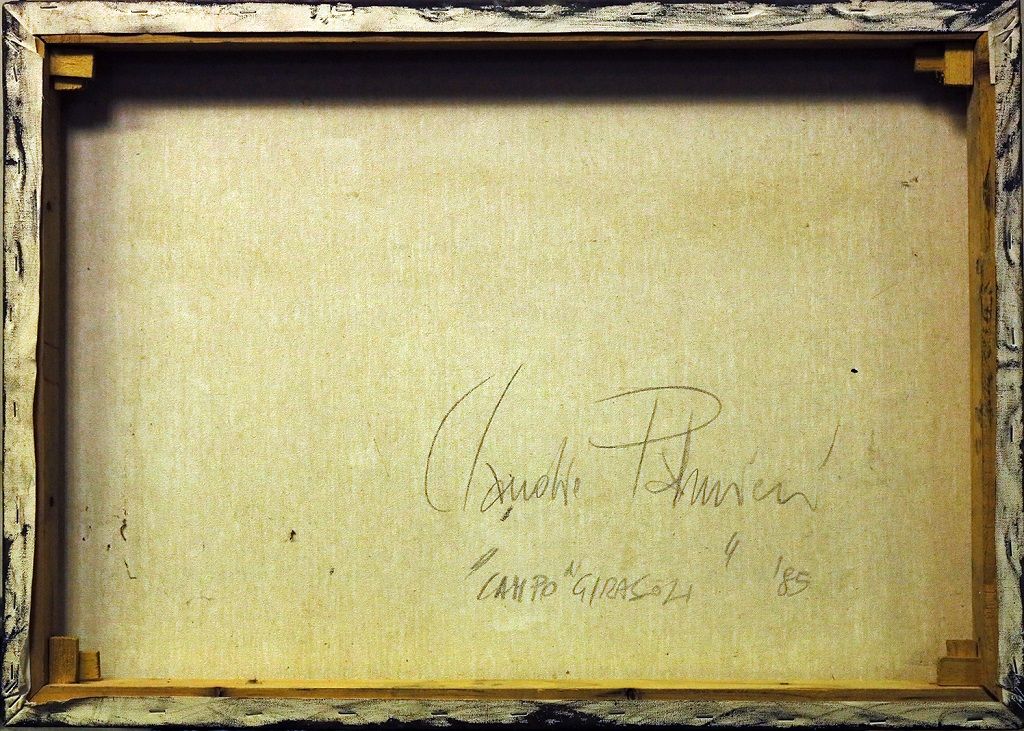 Claudio
"CAMPO "GIRASOLI" '85